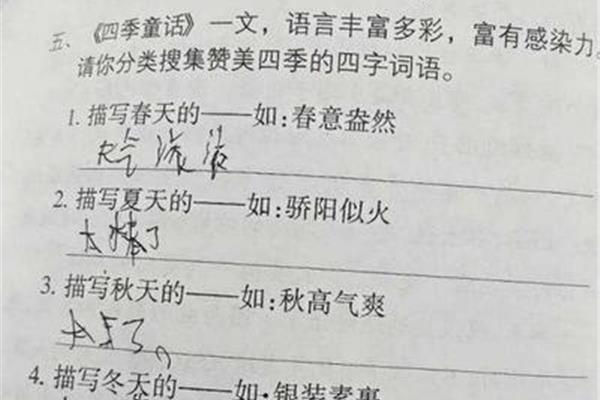 五、《四季童话》一文，语言丰富多彩，富有感染力。
请你分类搜集赞美四季的四字词语。
1. 描写春天的——如：春意盎然
天气
2. 描写夏天的——如：骄阳似火
太棒了
3. 描写秋天的——如：秋高气爽
太美了。
4. 描写冬天的——如：银装素裹